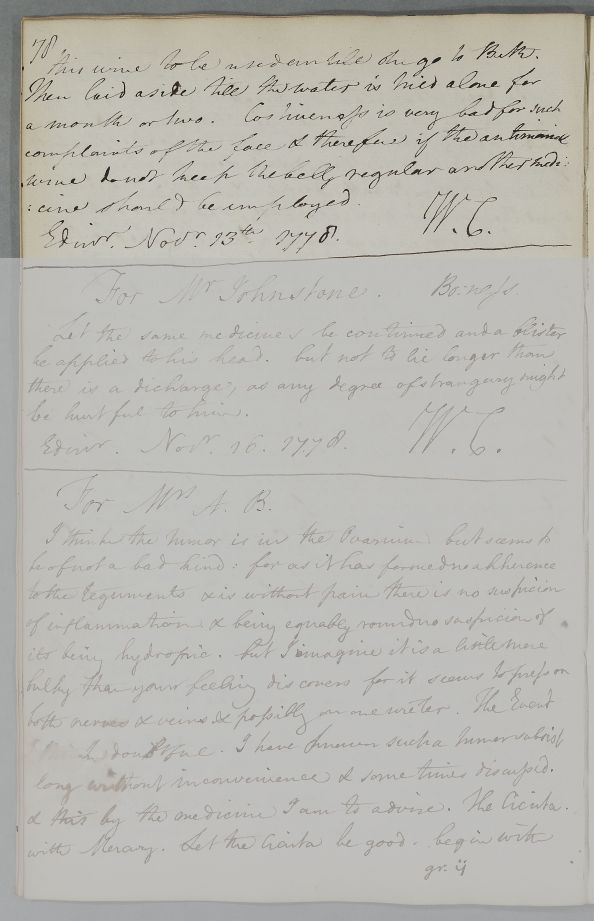 78
this wine to be used until she go to Bath.
Then laid aside till the water is tried alone for
a month or two. Costiveness is very bad for such
complaints of the face & therefore if the antimonial
wine do not keep the belly regular another medi:
:cine should be employed.
Edinr. Novr. 13th 1778. W. C.
For Mr Johnstone. Bo:ness
Let the same medicines be continued and a blister
be applied to his head. but not to lie longer than
there is a discharge, as any degree of strangury might
be hurtful to him.
Edinr. Novr. 16. 1778. W. C.
For Mrs A. B.
I think the tumor is in the Ovarium but seems to
be of not a bad kind: for as it has formed no adherence
to the teguments & is without pain there is no suspicion
of inflammation & being equably round no suspicion of
its being hydropic. but I imagine it is a little more
bulky than your feeling discovers for it seems to press on
both nerves & veins & possibly on one ureter. The Event
doubtful. I have known such a tumor subsist
long without inconvenience & some times discussed.
& this by the medicine I am to advise. The Cicuta.
with Mercury. Let the Cicuta be good. begin with
gr. ij